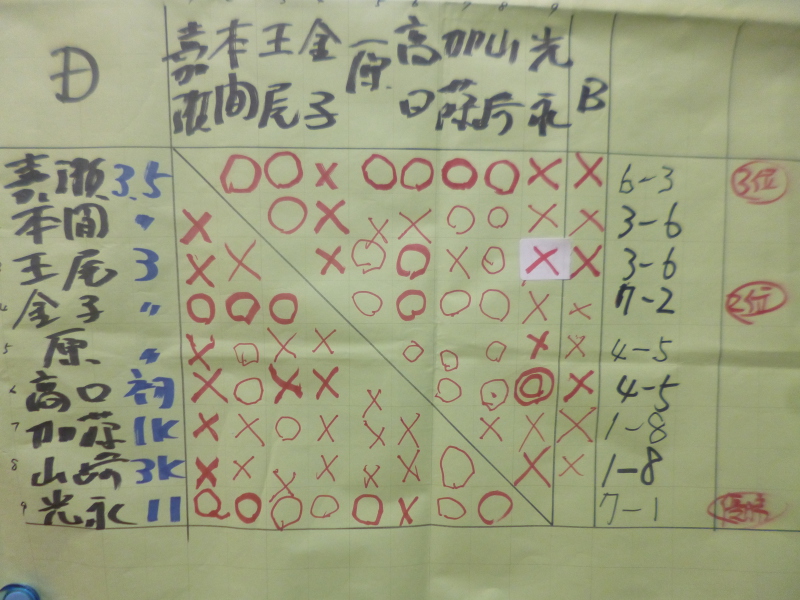 D 嘉瀬 本間 王尾 金子 原 高口 加藤 山崎 光永 B
嘉瀬 3.5 ○ ○ × ○ ○ ○ ○ × × 6-3 3位
本間 〃 × ○ × × × ○ ○ × × 3-6
王尾 3 × × × ○ ○ × ○ × × 3-6
金子 〃 ○ ○ ○ ○ ○ ○ ○ × × 7-2 2位
原 〃 × ○ × × ○ ○ ○ × × 4-5
高口 初 × ○ × × × ○ ○ ◎ × 4-5
加藤 1K × × ○ × × × × × × 1-8
山崎 3K × × × × × × ○ × × 1-8
光永 11 ○ ○ ○ ○ ○ × ○ ○ 7-1 優勝